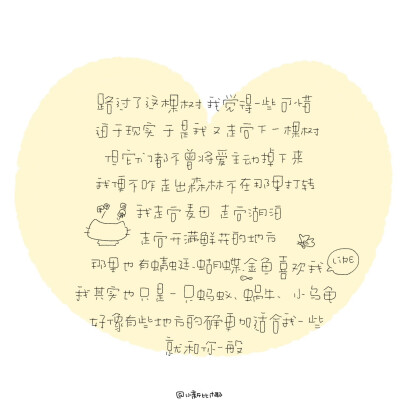 路过了这棵树 我觉得一些可惜
迫于现实 于是我又走向下一棵树
但它们都不曾将爱主动掉下来
我便不咋走出森林不在那里打转
我走向麦田 走向湖泊
走向开满鲜花的地方
那里也有蜻蜓、蝴蝶、金鱼喜欢我
LIKE
我其实也只是一只蚂蚁、蜗牛、小乌龟
好像有些地方的确更加适合我一些
就和你一般
@小新比擞